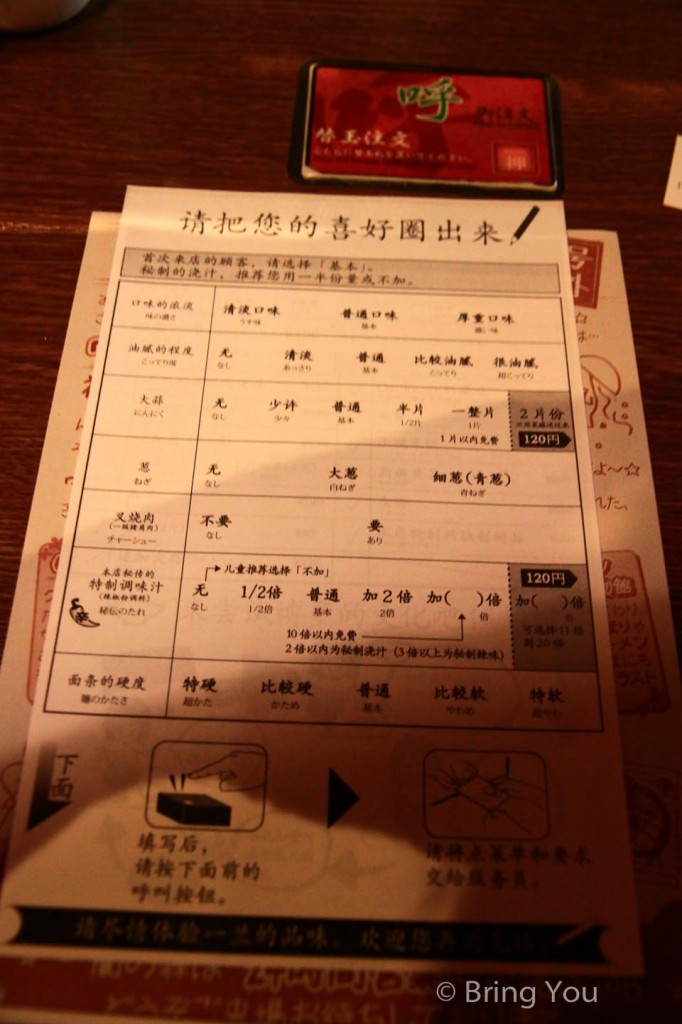 呼
替玉注文
押
请把您的喜好圈出来
首次来店的顾客，请选择「基本」。
秘制的浇汁，推荐您用一半份量或不加。
口味的浓淡 清淡口味 普通口味 厚重口味
味の濃さ うす味 基本 濃い味
油腻的程度 无 清淡 普通 比较油腻 很油腻
こってり度 なし あっさり 基本 こってり 超こってり
大蒜 无 少许 普通 半片 一整片 2片份
にんにく なし 少々 基本 1/2片 1片
1片以内免费 120円
葱 无 大葱 细葱(青葱)
ねぎ なし 白ねぎ 青ねぎ
叉烧肉 不要 要
(一级猪肩肉)
チャーシュー なし あり
儿童推荐选择「不加」 120円
本店秘传的
特制调味汁 无 1/2倍 普通 加2倍 加( )倍 加( )倍
(辣椒粉调料)
秘伝のたれ なし 1/2倍 基本 2倍 倍 倍
10倍以内免费 可选择11倍
2倍以内为秘制浇汁 (3倍以上为秘制辣味) 到20倍
面条的硬度 特硬 比较硬 普通 比较软 特软
麺のかたさ 超かた かため 基本 やわめ 超やわ
下面
填写后，
请按下面前的
呼叫按钮。
请将点菜单和要求
交给服务员。
请尽情体验一兰的品味。欢迎您再次光临。
© Bring You